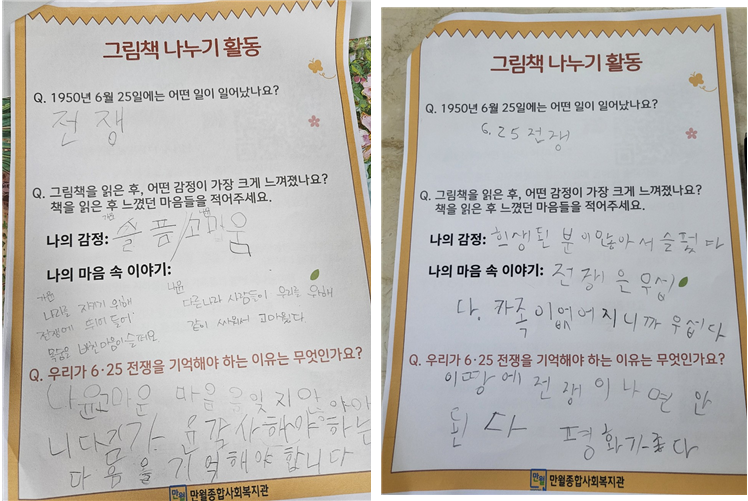 그림책 나누기 활동
Q. 1950년 6월 25일에는 어떤 일이 일어났나요?
전쟁
Q. 그림책을 읽은 후, 어떤 감정이 가장 크게 느껴졌나요?
책을 읽은 후 느꼈던 마음들을 적어주세요.
나의 감정: 슬픔/고마움
나의 마음 속 이야기:
나라를 지키기 위해
전쟁에 뛰어들어
목숨을 바친 마음이 슬퍼요
다른나라 사람들이 우리를 위해
같이 싸워줘서 고마웠다
Q. 우리가 6·25 전쟁을 기억해야 하는 이유는 무엇인가요?
나윤 고마운 마음을 잊지 않아야
니다
감사해야하는
마음을 기억해야합니다
만월 만월종합사회복지관
그림책 나누기 활동
Q. 1950년 6월 25일에는 어떤 일이 일어났나요?
6.25전쟁
Q. 그림책을 읽은 후, 어떤 감정이 가장 크게 느껴졌나요?
책을 읽은 후 느꼈던 마음들을 적어주세요.
나의 감정: 희생된 분이 많아서 슬펐다
나의 마음 속 이야기: 전쟁은 무섭
다. 가족이 없어지니까 무섭다
Q. 우리가 6·25 전쟁을 기억해야 하는 이유는 무엇인가요?
이땅에 전쟁이 나면 안
된다 평화가좋다
만월 만월종합사회복지관